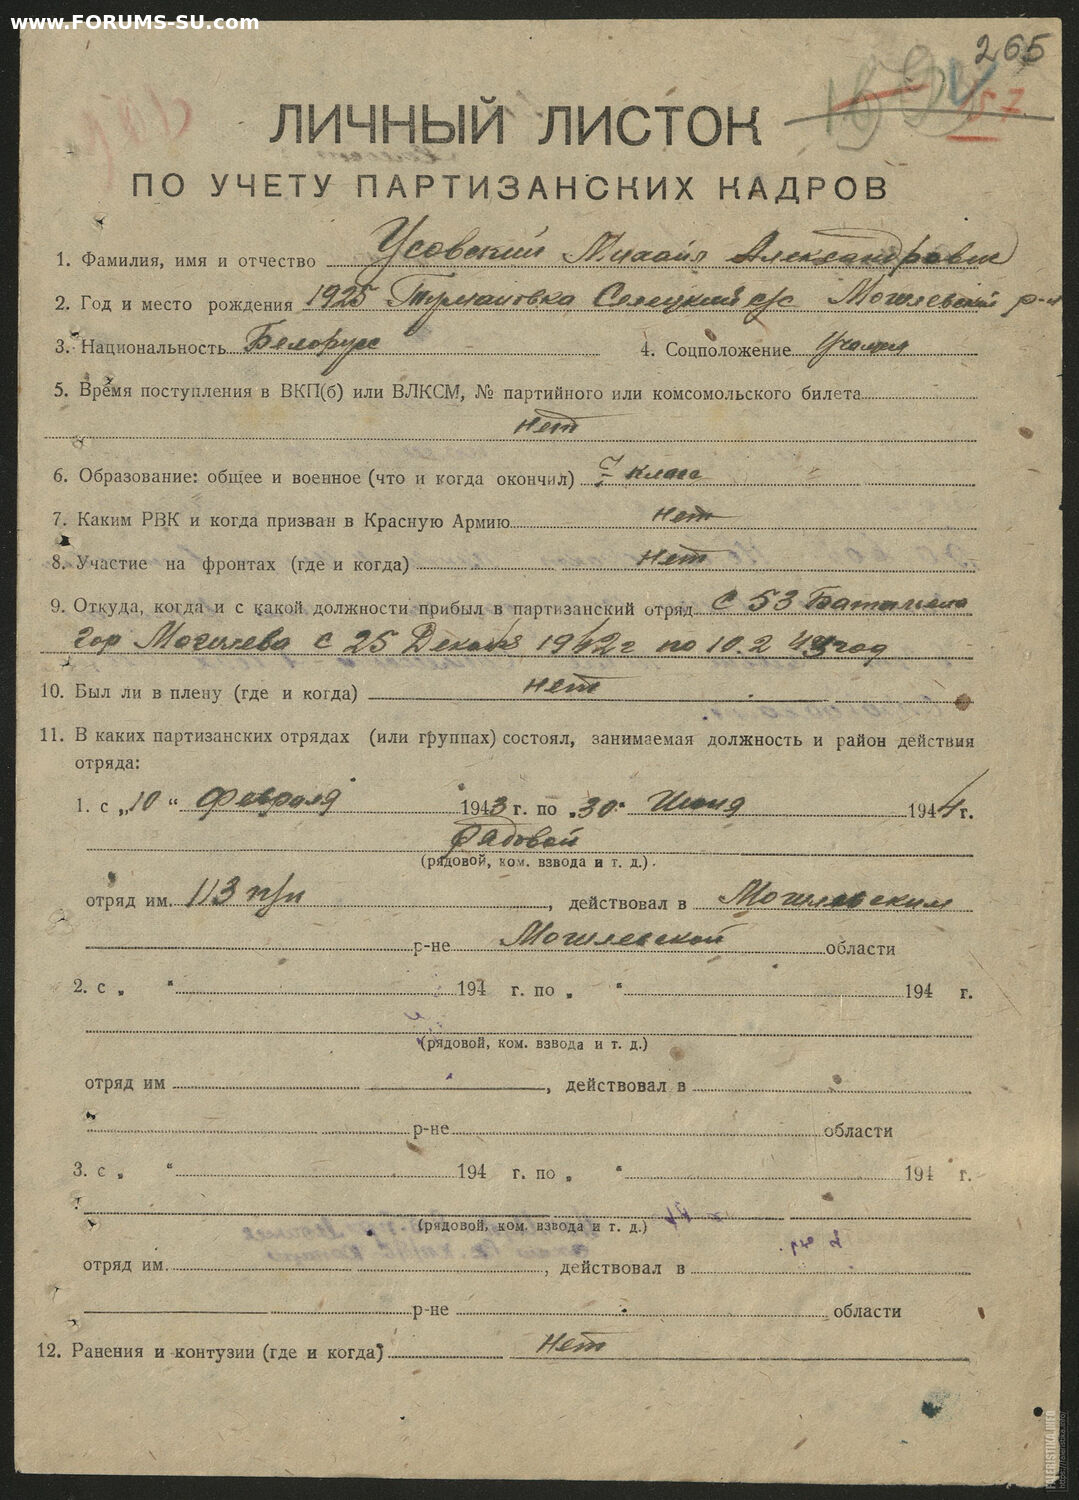 www.FORUMS-SU.com
265
157
ЛИЧНЫЙ ЛИСТОК
ПО УЧЕТУ ПАРТИЗАНСКИХ КАДРОВ
1. Фамилия, имя и отчество Усовский Михаил Александрович
2. Год и место рождения 1925 Тумановка Селецкий с/с Могилевский р-н
3. Национальность Белорус 4. Соцположение Учащийся
5. Время поступления в ВКП(б) или ВЛКСМ, № партийного или комсомольского билета
нет
6. Образование: общее и военное (что и когда окончил) 7 класс
7. Каким РВК и когда призван в Красную Армию нет
8. Участие на фронтах (где и когда) нет
9. Откуда, когда и с какой должности прибыл в партизанский отряд с 53 Батальона
гор Могилева с 25 Декабря 1942г по 10.2 43 год
10. Был ли в плену (где и когда) нет
11. В каких партизанских отрядах (или группах) состоял, занимаемая должность и район действия
отряда:
1. с „10“ Февраля 1943 г. по „30“ Июня 1944 г.
Рядовой
(рядовой, ком. взвода и т. д.)
отряд им. 113 п/п, действовал в Могилевским
р-не Могилевской области
2. с „ “ 194 г. по „ “ 194 г.
(рядовой, ком. взвода и т. д.)
отряд им , действовал в
р-не области
3. с „ “ 194 г. по „ “ 194 г.
(рядовой, ком. взвода и т. д.)
отряд им. , действовал в
р-не области
12. Ранения и контузии (где и когда) Нет
FALERISTIKA.INFO
https://faleristika.info/